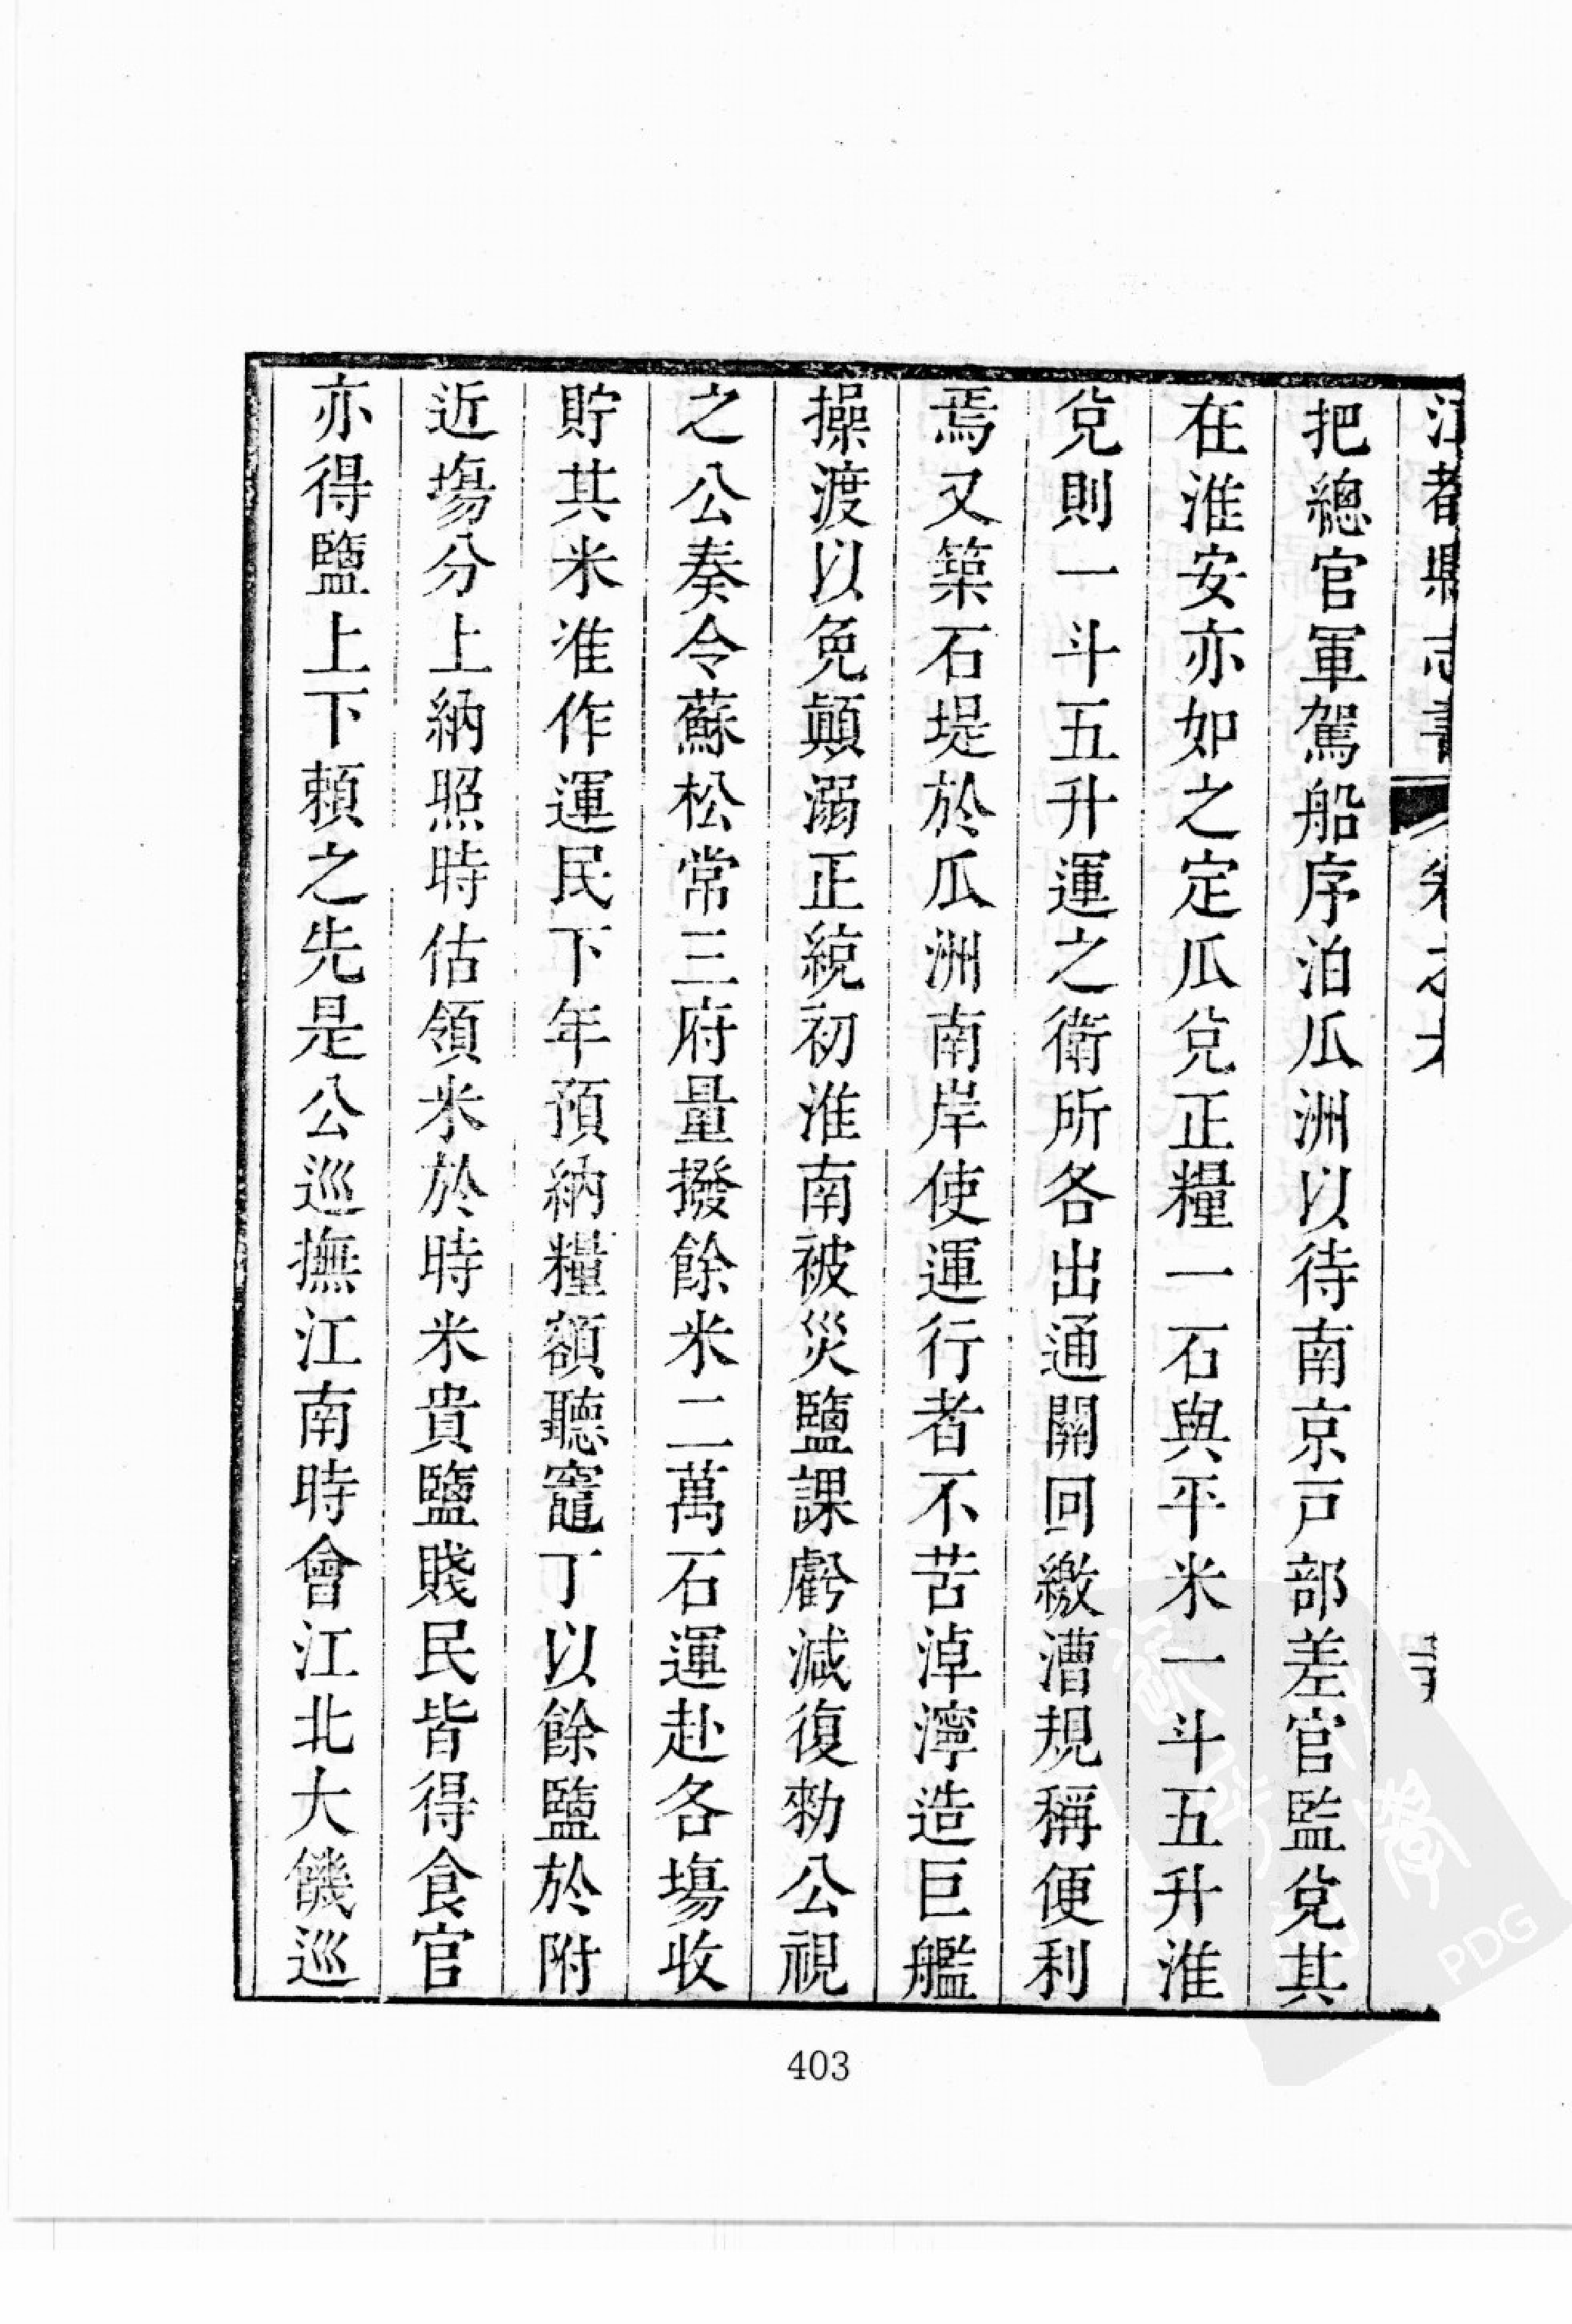 江都縣志書 卷之六
把總官軍駕船序泊瓜洲以待南京戸部差官監兌其
在淮安亦如之定瓜兌正糧一石與平米一斗五升淮
兌則一斗五升運之衛所各出通關回繳漕規稱便利
焉又築石堤於瓜洲南岸使運行者不苦淖濘造巨艦
操渡以免顛溺正統初淮南被災鹽課虧減復勑公視
之公奏令蘇松常三府量撥餘米二萬石運赴各塲收
貯其米准作運民下年預納糧額聽竈丁以餘鹽於附
近塲分上納照時估領米於時米貴鹽賤民皆得食官
亦得鹽上下賴之先是公巡撫江南時會江北大饑巡
403
PDG